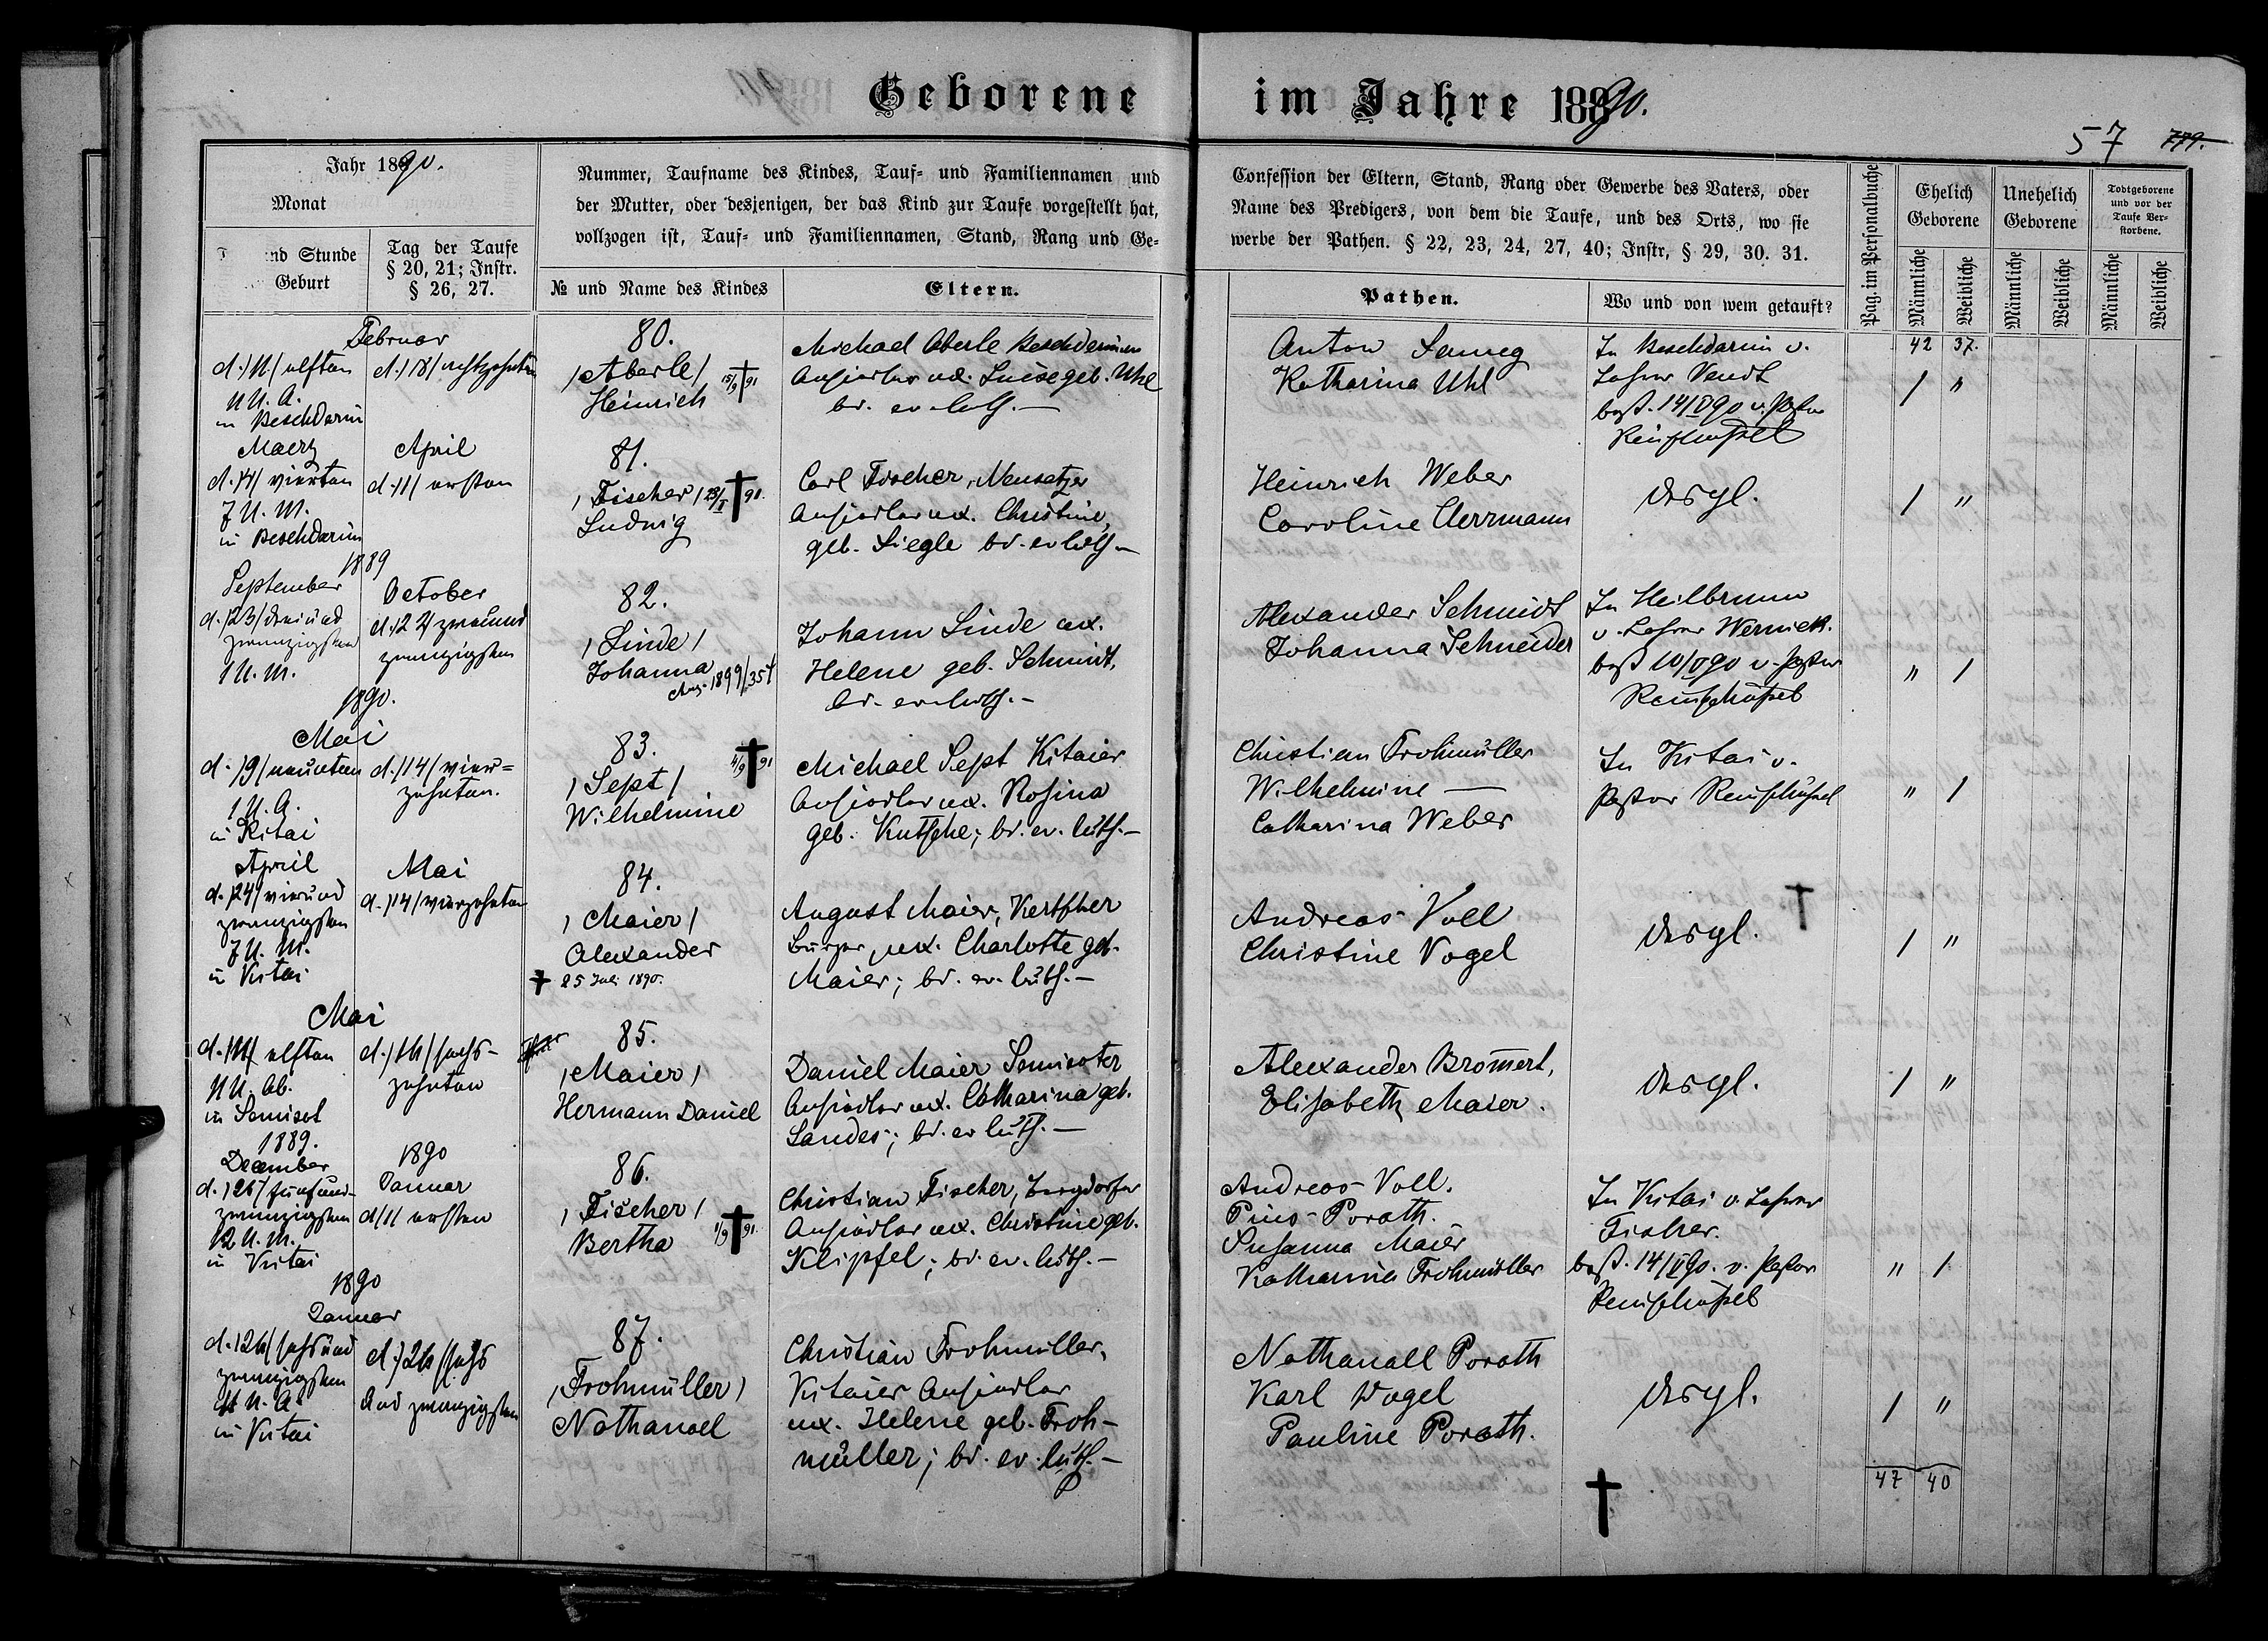 Geborene im Jahre 1890.
57 779.
Jahr 1890.
Monat
nd Stunde
Geburt
Tag der Taufe
§ 20, 21; Instr.
§ 26, 27.
Nummer, Taufname des Kindes, Tauf- und Familiennamen und
der Mutter, oder desjenigen, der das Kind zur Taufe vorgestellt hat,
vollzogen ist, Tauf- und Familiennamen, Stand, Rang und Ge-
№ und Name des Kindes
Eltern.
Confession der Eltern, Stand, Rang oder Gewerbe des Vaters, oder
Name des Predigers, von dem die Taufe, und des Orts, wo sie
werbe der Pathen. § 22, 23, 24, 27, 40; Instr, § 29, 30. 31.
Pathen.
Wo und von wem getauft?
Pag. im Personalbuche
Ehelich
Geborene
Unehelich
Geborene
Todtgeborene
und vor der
Taufe Ver-
storbene.
Männliche
Weibliche
Männliche
Weibliche
Männliche
Weibliche
42 37.
Februar
d. /11/ elften
11 U. A.
in Beschdarim
d. /18/ achtzehnten
80.
/Aberle/
Heinrich
15/9 † 91
Michael Aberle Beschdarimer
Ansiedler ux. Luise geb. Uhl
bd. ev. luth. —
Anton
Katharina Uhl
In Beschdarim v.
Lehrer Vendt
best. 14/V 90 v. Pastor
/ "
Maerz
d. /4/ vierten
7 U. M.
in Beschdarim
April
d. /1/ ersten
81.
/Fischer/
Ludwig
Carl Fischer, Neusatzer
Ansiedler ux. Christine,
geb. Siegle bd. ev. luth. —
Heinrich Weber
Caroline Herrmann
desgl.
/ "
1889
September
d. /23/ dreiund
zwanzigsten
1 U. M.
October
d. /22/ zweiund
zwanzigsten
82.
/Linde/
Johanna
Johann Linde ux.
Helene geb. Schmidt,
bd. ev. luth. —
Alexander Schmidt
Johanna Schneider
In Heilbrunn
v. Lehrer Wernick.
best 10/V 90 v. Pastor
" /
1890.
Mai
d. /9/ neunten
1 U. A.
in Kitai
d. /14/ vier=
zehnten.
83.
/Sept/
Wilhelmine
4/9 † 91
Michael Sept Kitaier
Ansiedler ux. Rosina
geb. Kutsche; bd. ev. luth. —
Christian Frohmüller
Wilhelmine —
Catharina Weber
In Kitai v.
Pastor
" /
April
d. /24/ vierund
zwanzigsten
7 U. M.
in Kitai
Mai
d. /14/ vierzehnten
84.
/Maier/
Alexander
† 25 Juli 1890.
August Maier, Kertscher
Bürger, ux. Charlotte geb.
Maier; bd. ev. luth. —
Andreas Voll
Christine Vogel
desgl.
†
/ "
Mai
d. /11/ elften
11 U. Ab.
in Semisot
d. /16/ sechs-
zehnten
85.
/Maier/
Hermann Daniel
Daniel Maier Semisoter
Ansiedler ux. Catharina geb.
Landes; bd. ev. luth. —
Alexander Brommert,
Elisabeth Maier.
desgl.
/ "
1889.
December
d. /25/ fünfund-
zwanzigsten
12 U. M.
in Kitai
1890
Januar
d. /1/ ersten
86.
/Fischer/
Bertha
1/9 † 91.
Christian Fischer, Bergdorfer
Ansiedler ux. Christine geb.
Klipfel; bd. ev. luth. —
Andreas Voll.
Pius Porath.
Susanna Maier
Katharina Frohmüller
In Kitai v. Lehrer
Fischer.
best. 14/V 90. v. Pastor
" /
1890
Januar
d. /26/ sechsund
zwanzigsten
11 U. A.
in Kitai
d. /26/ sechs
und zwanzigsten
87.
/Frohmüller/
Nathanael
Christian Frohmüller,
Kitaier Ansiedler
ux. Helene geb. Froh-
müller; bd. ev. luth. —
Nathanael Porath
Karl Vogel
Pauline Porath.
desgl.
/ "
†
47 40